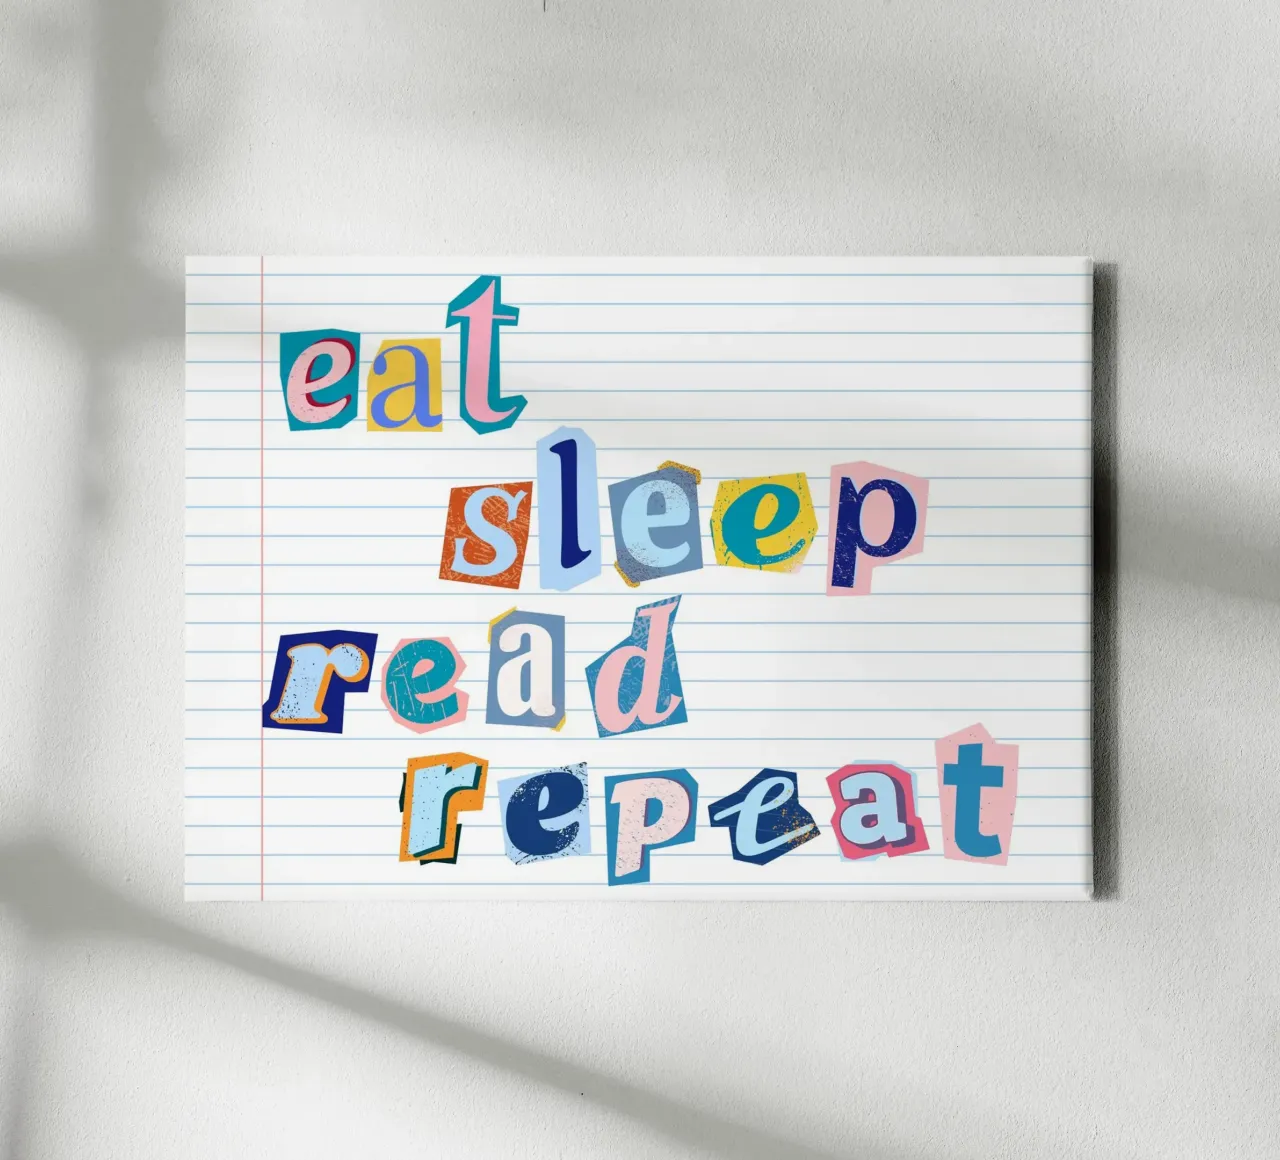 eat
sleep
read
repeat